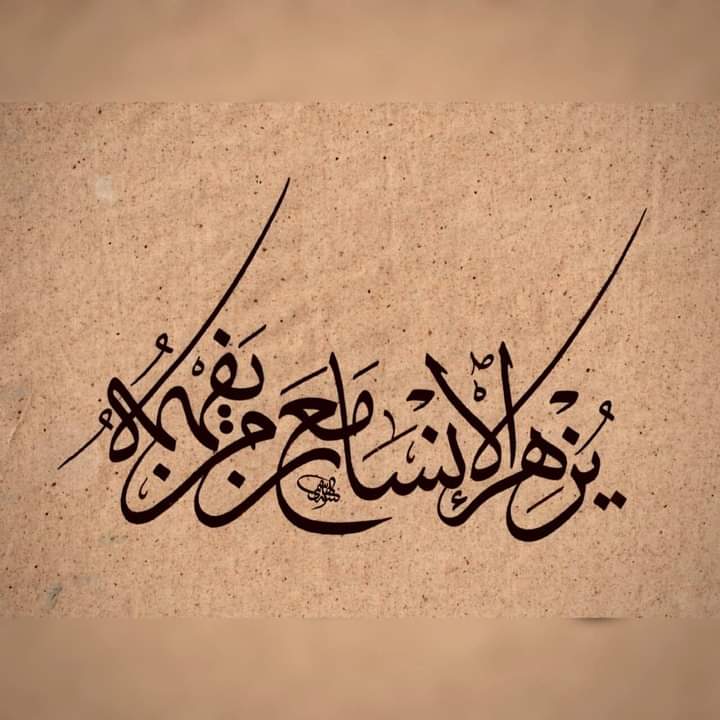 يُزهِر الإنسان مَع مَن يَفهمهُ